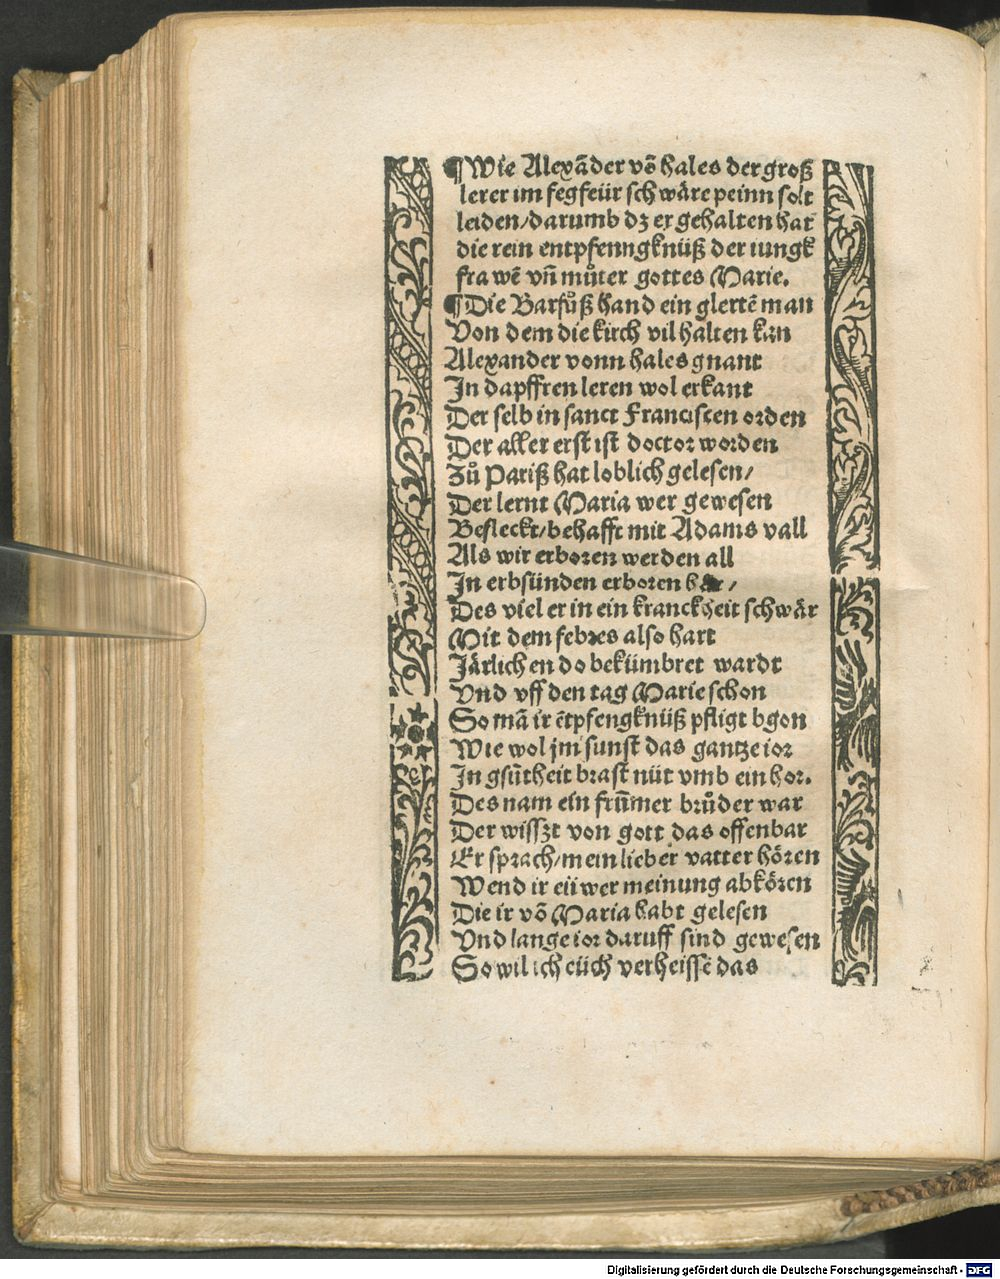 ¶Wie Alexāder vō hales der groß
lerer im fegfeür schwäre peinn solt
leiden/darumb dz er gehalten hat
die rein entpfenngknüß der iungk
frawē vn̄ můter gottes Marie.
¶Die Barfůß hand ein glertē man
Von dem die kirch vil halten kan
Alexander vonn hales gnant
In dapffren leren wol erkant
Der selb in sanct Franciscen orden
Der aller erst ist doctor worden
Zů Pariß hat loblich gelesen/
Der lernt Maria wer gewesen
Befleckt/behafft mit Adams vall
Als wir erboren werden all
In erbsünden erboren /
Des viel er in ein kranckheit schwär
Mit dem febres also hart
Järlichen do bekümbret wardt
Vnd vff den tag Marie schon
So mā ir ētpfengknüß pfligt bgon
Wie wol jm sunst das gantze ior
In gsūtheit brast nüt vmb ein hor.
Des nam ein frūmer brůder war
Der wisszt von gott das offenbar
Er sprach/mein lieber vatter hören
Wend ir eüwer meinung abkören
Die ir vō Maria habt gelesen
Vnd lange ior daruff sind gewesen
So wil ich eüch verheissē das
Digitalisierung gefördert durch die Deutsche Forschungsgemeinschaft - DFG